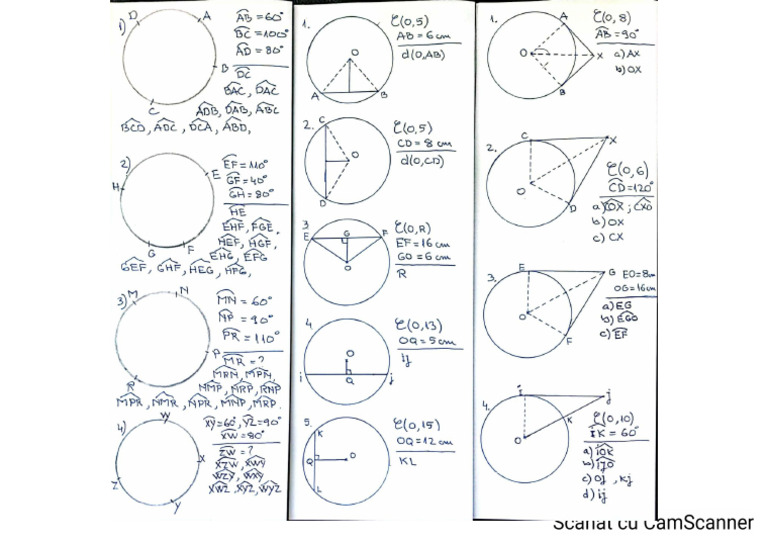 1) D A
B
C
A͡B = 60°
B͡C = 100°
A͡D = 80°
D͡C
BAC, DAC
ADB, DAB, ABC
BCD, ADC, DCA, ABD,
2)
H E
G F
E͡F = 110°
G͡F = 40°
G͡H = 80°
H͡E
EHF, FGE,
HEF, HGF,
EHG, EFG
GEF, GHF, HEG, HFG,
3) M N
P
R
M͡N = 60°
N͡P = 90°
P͡R = 110°
M͡R = ?
MRN, MPN,
NMP, NRP, RNP
MPR, NMR, NPR, MNP, MRP.
4) W
X
Z
Y
X͡Y = 60°, Y͡Z = 90°
X͡W = 80°
Z͡W = ?
XZW, XWY
WZY, WXY
XWZ, XYZ, WYZ
1. C(O,5)
AB = 6 cm
d(O,AB)
O
A B
2. C
O
D
C(O,5)
CD = 8 cm
d(O,CD)
3
E G F
O
C(O,R)
EF = 16 cm
GO = 6 cm
R
4
O
i Q j
C(O,13)
OQ = 5 cm
ij
5.
K
Q O
L
C(O,15)
OQ = 12 cm
KL
1. A
O X
B
C(O,8)
A͡B = 90°
a) AX
b) OX
2. C X
O
D
C(O,6)
C͡D = 120°
a) DOX ; CXO
b) OX
c) CX
3. E G
O
F
EO = 8cm
OG = 16cm
a) EG
b) EGO
c) E͡F
4. I j
K
O
C(O,10)
I͡K = 60°
a) IOK
b) IJO
c) OJ, Kj
d) ij
Scanat cu CamScanner